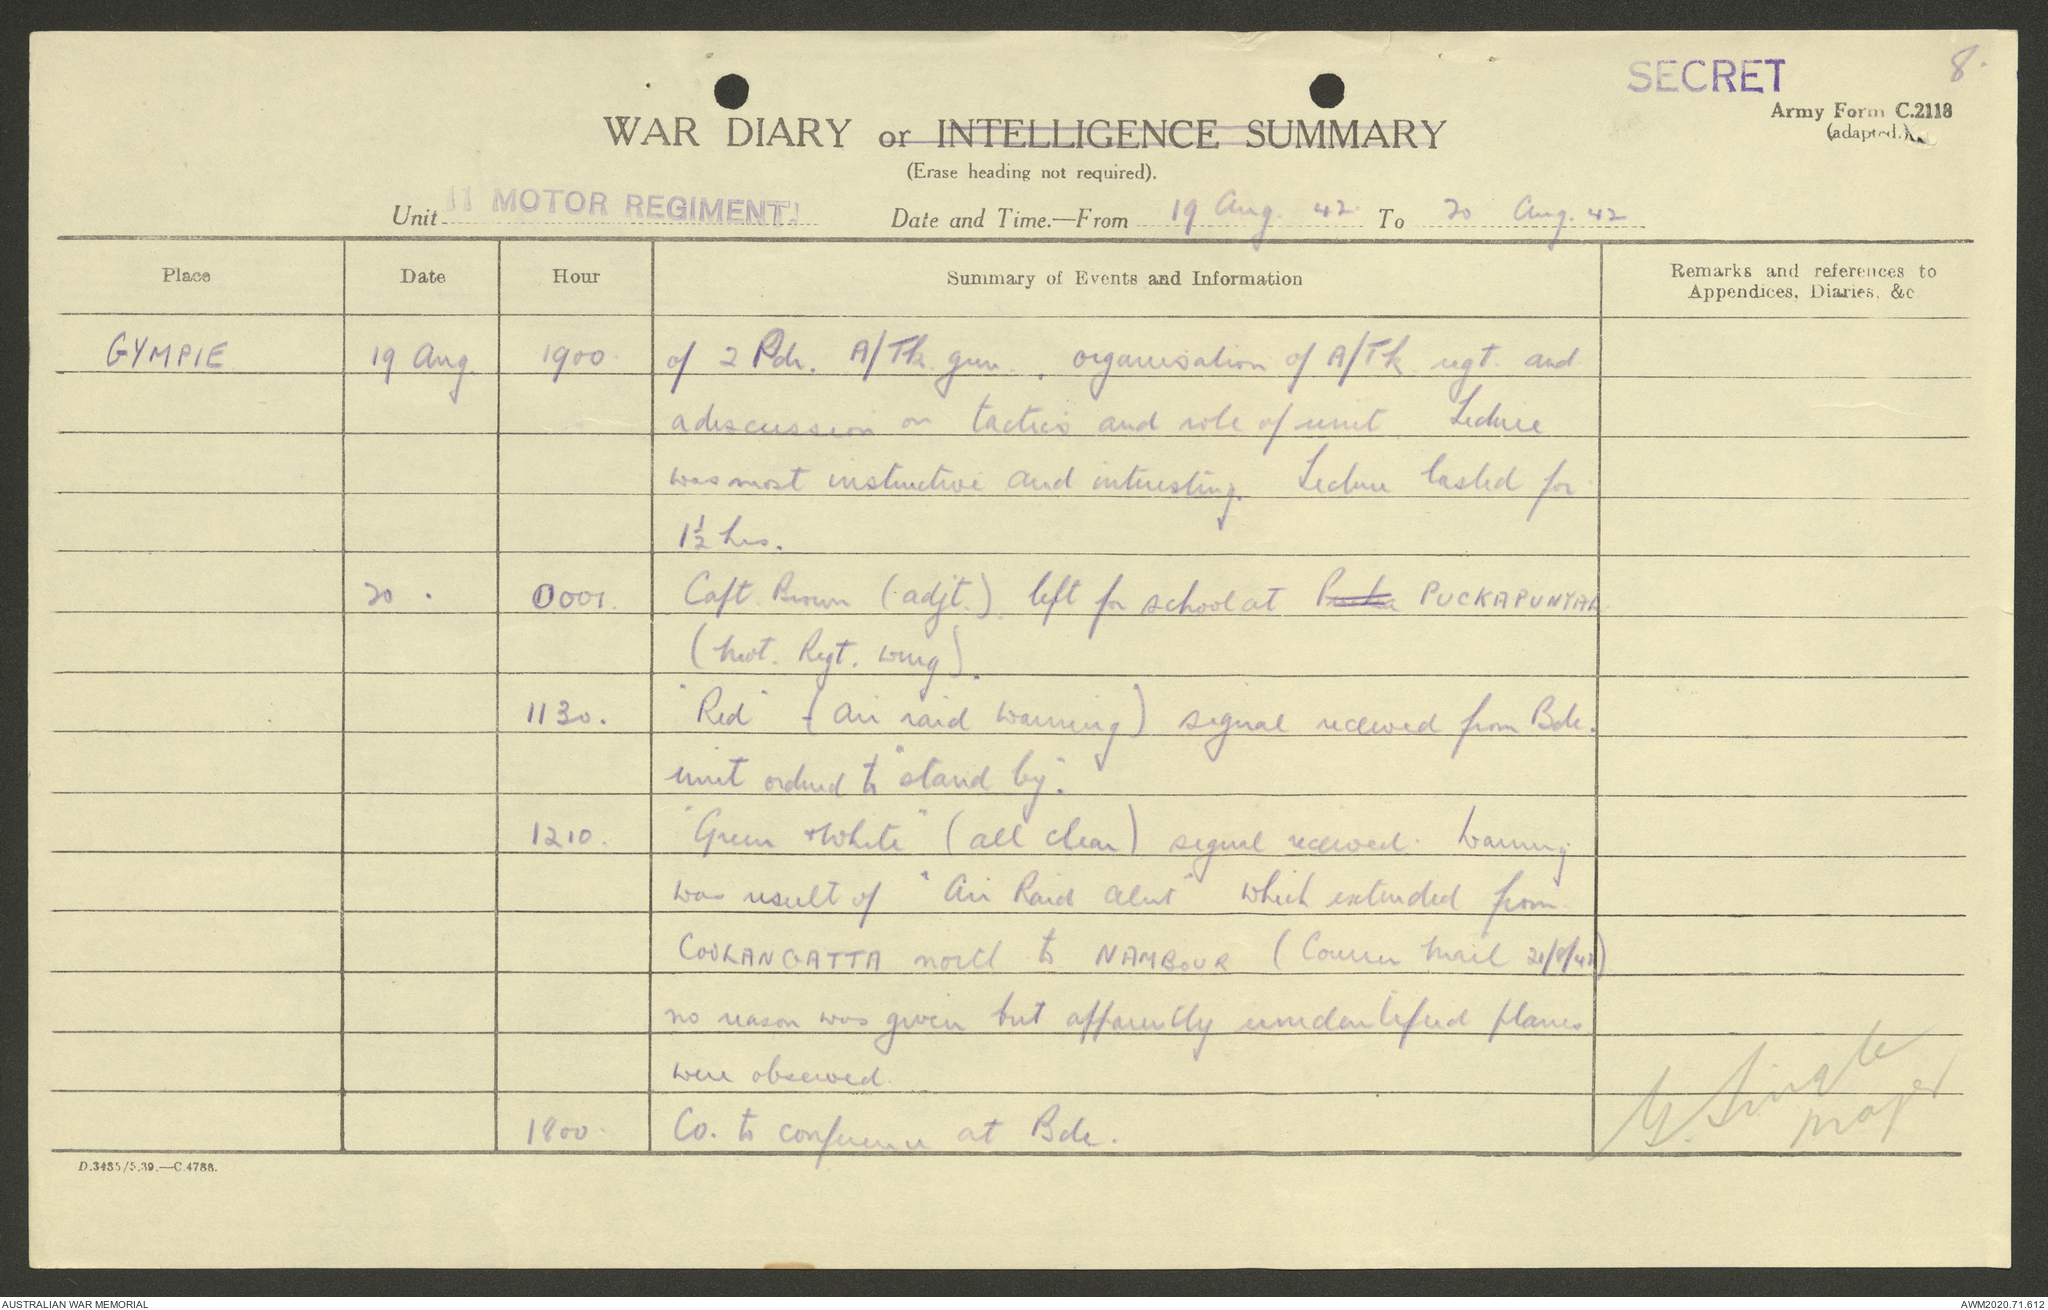 SECRET 8.
Army Form C.2118
(adapted.)
WAR DIARY or INTELLIGENCE SUMMARY
(Erase heading not required).
Unit 11 MOTOR REGIMENT. Date and Time.—From 19 Aug. 42. To 20 Aug. 42
Place Date Hour Summary of Events and Information Remarks and references to
Appendices, Diaries, &c
GYMPIE 19 Aug. 1900. of 2 Pdr. A/Tk gun., organisation of A/Tk regt. and
a discussion on tactics and role of unit. Lecture
was most instructive and interesting. Lecture lasted for
1½ hrs.
20 . 0001. Capt. Brown (adjt.) left for school at Pucka PUCKAPUNYAL
(Mot. Regt. Wing).
1130. "Red" - (Air raid warning) signal received from Bde.
unit ordered to "stand by".
1210. "Green & White" (all clear) signal received. Warning
was result of "Air Raid Alert" which extended from
COOLANGATTA north to NAMBOUR (Courier Mail 21/8/42)
no reason was given but apparently unidentified planes
were observed.
1800. Co. to conference at Bde.
G. Single
Major
D.3435/5.39.—C.4788.
AUSTRALIAN WAR MEMORIAL AWM2020.71.612